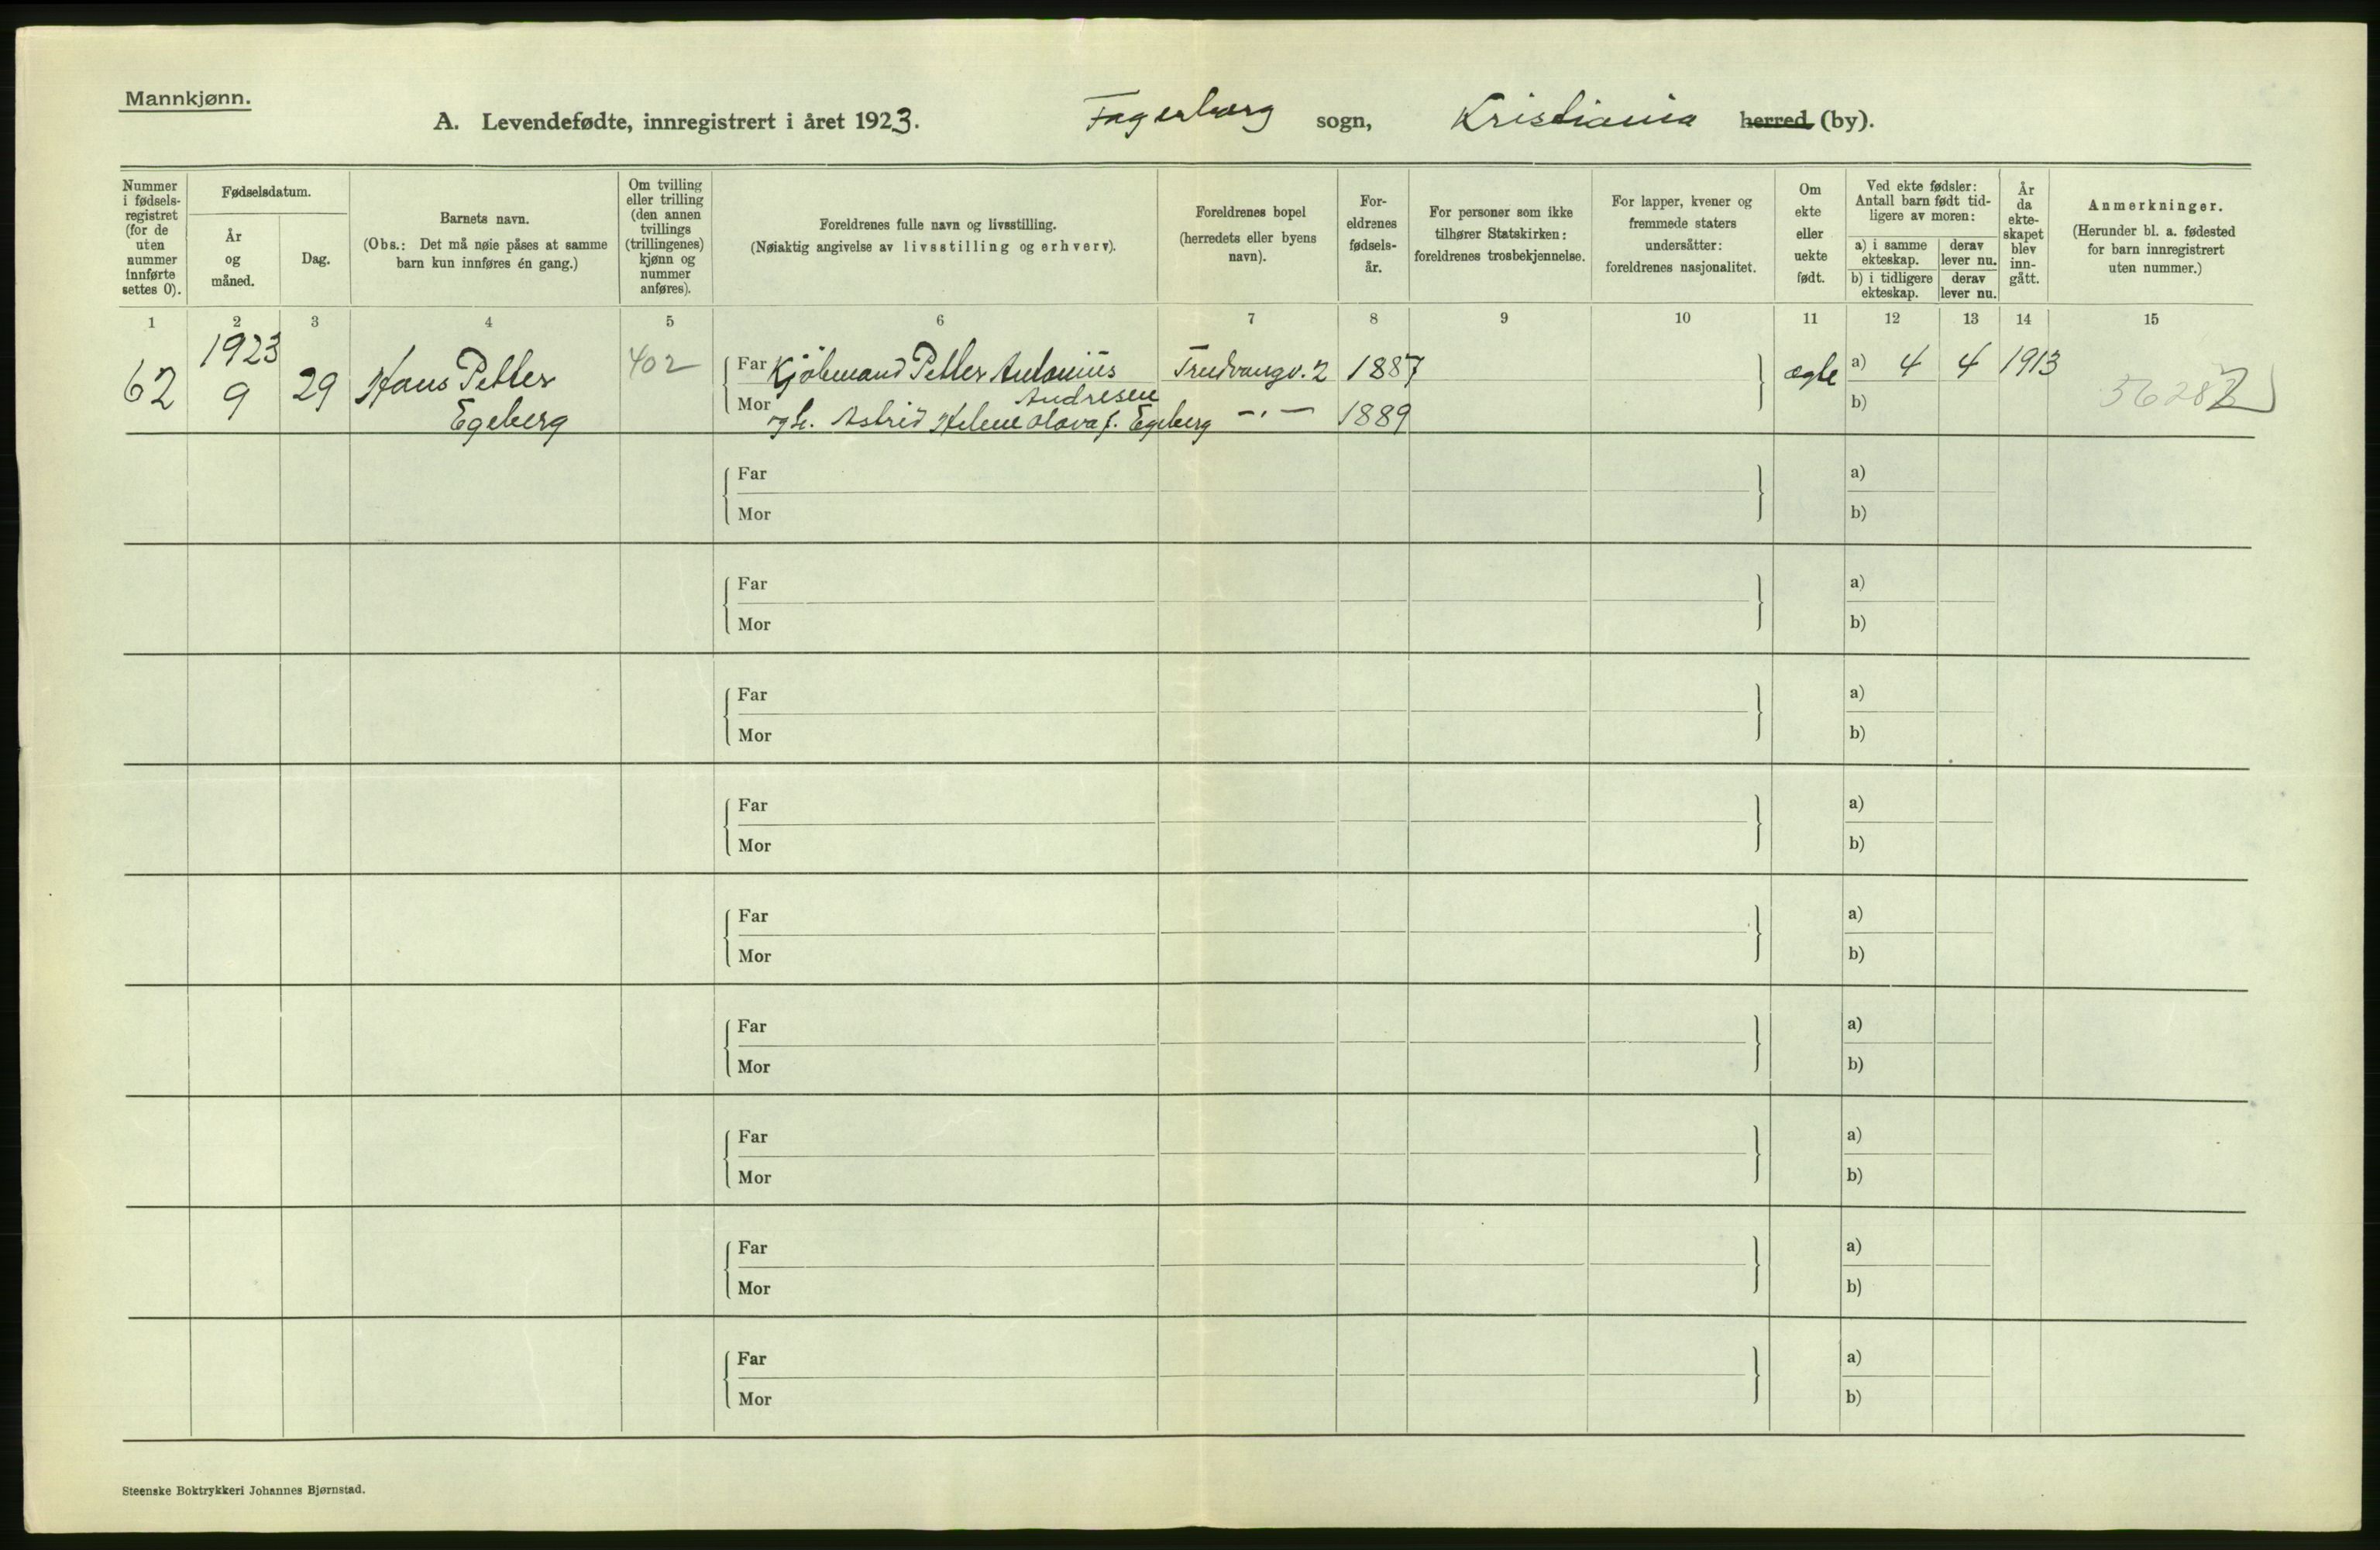 Mannkjønn.
A. Levendefødte, innregistrert i året 1923. Fagerborg sogn, Kristiania herred (by).
Nummer i fødselsregistret (for de uten nummer innførte settes 0).
Fødselsdatum.
År og måned.
Dag.
Barnets navn.
(Obs.: Det må nøie påses at samme barn kun innføres én gang.)
Om tvilling eller trilling (den annen tvillings (trillingenes) kjønn og nummer anføres).
Foreldrenes fulle navn og livsstilling.
(Nøiaktig angivelse av livsstilling og erhverv).
Foreldrenes bopel (herredets eller byens navn).
Foreldrenes fødselsår.
For personer som ikke tilhører Statskirken: foreldrenes trosbekjennelse.
For lapper, kvener og fremmede staters undersåtter: foreldrenes nasjonalitet.
Om ekte eller uekte født.
Ved ekte fødsler: Antall barn født tidligere av moren:
a) i samme ekteskap.
derav lever nu.
b) i tidligere ekteskap.
derav lever nu.
År da ekteskapet blev inngått.
Anmerkninger.
(Herunder bl. a. fødested for barn innregistrert uten nummer.)
1 2 3 4 5 6 7 8 9 10 11 12 13 14 15
62 1923 9 29 Hans Petter Egeberg 402
Far Kjöbmand Petter Antonius Andresen Trudvangv. 2 1887
Mor og h. Astrid Helene Olava f. Egeberg -"- 1889
ægte a) 4 4 1913
b)
Far a)
Mor b)
Far a)
Mor b)
Far a)
Mor b)
Far a)
Mor b)
Far a)
Mor b)
Far a)
Mor b)
Far a)
Mor b)
Far a)
Mor b)
Far a)
Mor b)
Steenske Boktrykkeri Johannes Bjørnstad.